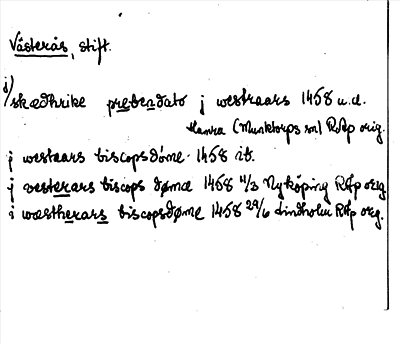 Västerås, stift.
j skædhrike prebendato j westraars 1458 u.d.
Hamra (Munktorps sn) RAp orig.
j westaars biscopsdôme 1458 ib.
j vesterars biscops dømæ 1458 4/3 Nyköping RAp orig.
i wæstherars biscopsdøme 1458 29/6 Lindholm RAp org.